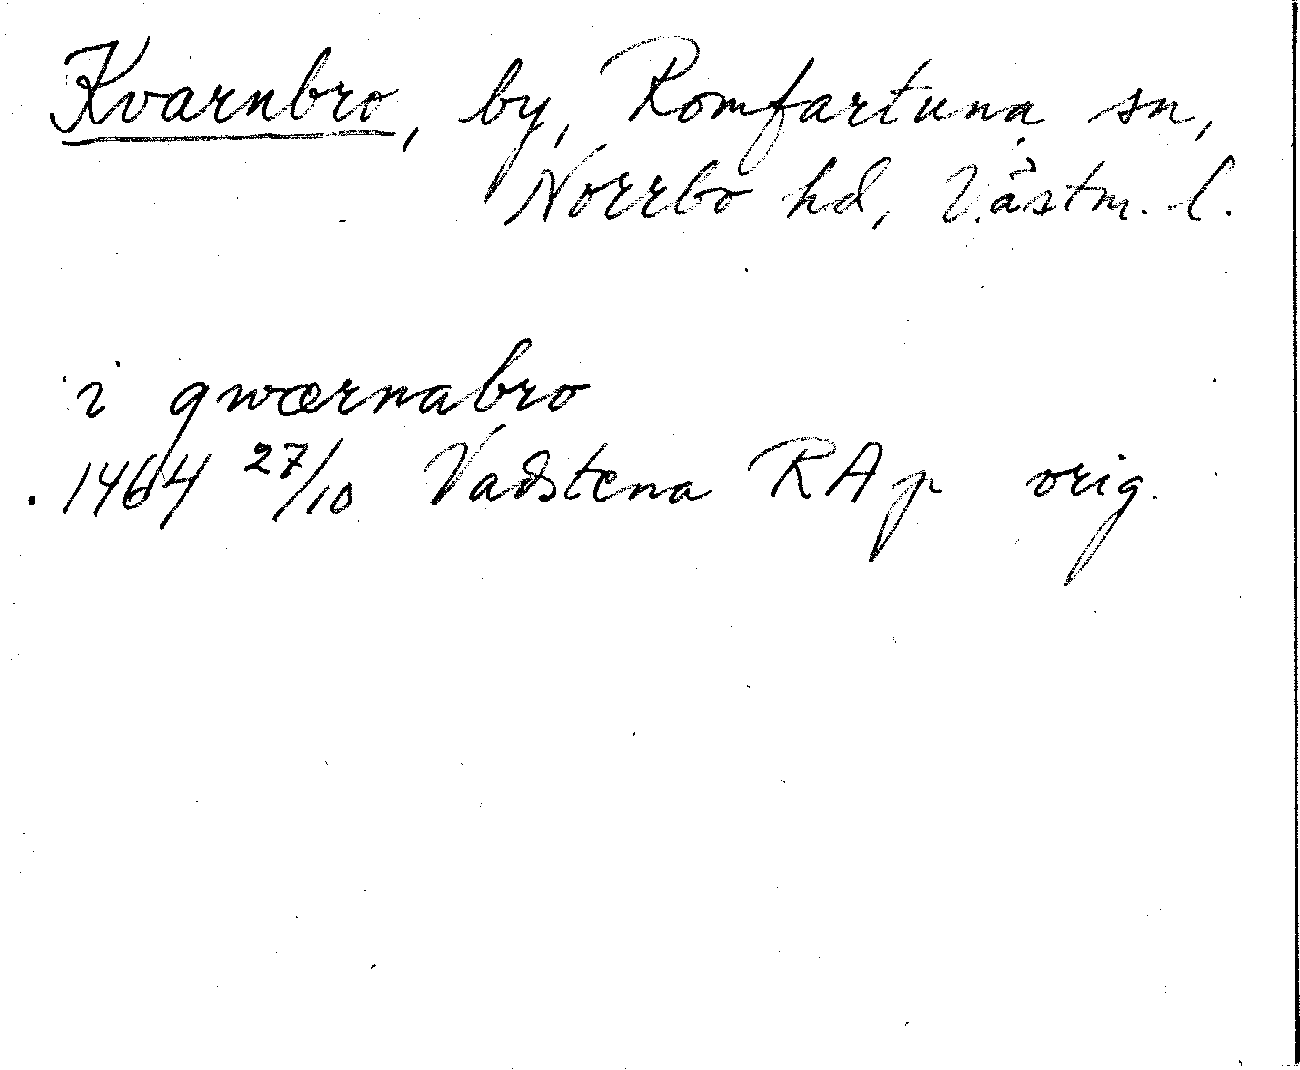 Kvarnbro, by, Romfartuna sn,
Norrbo hd, Västm. l.
i qwærnabro
1464 27/10 Vadstena RAp orig.